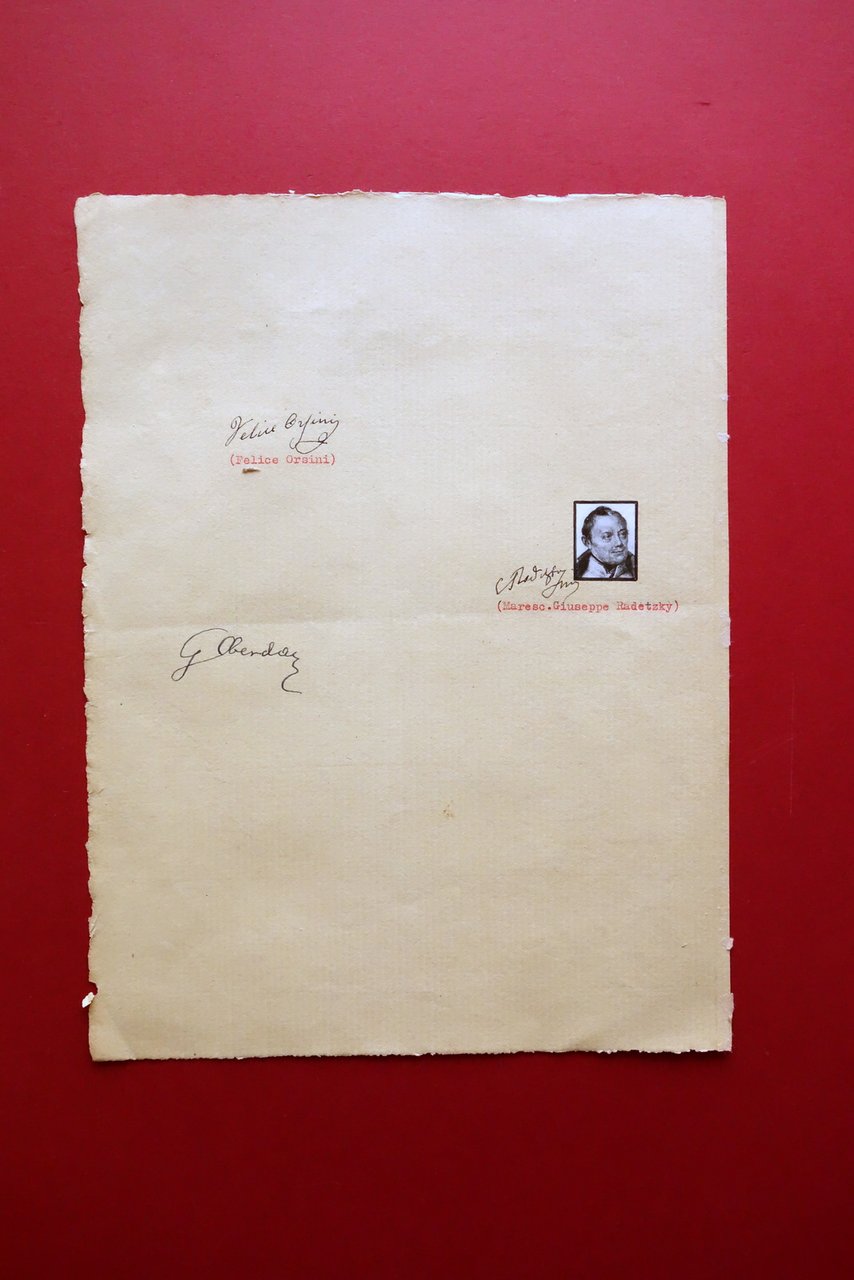 Felice Orsini
(Felice Orsini)
Radetzky
(Maresc.Giuseppe Radetzky)
G Oberdan